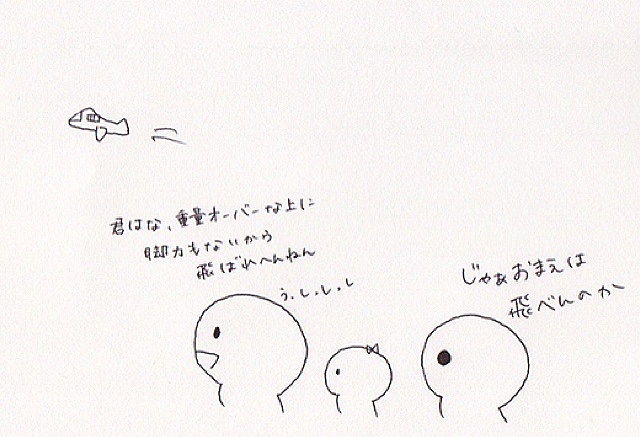 君はな、重量オーバーな上に
脚力もないから
飛ばれへんねん
う、し、し、し
じゃぁおまえは
飛べんのか